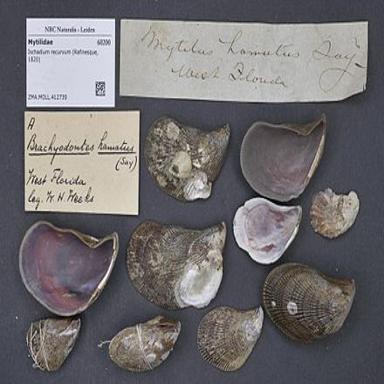 NBC Naturalis - Leiden
Mytilidae 60200
Ischadium recurvum (Rafinesque,
1820)
ZMA.MOLL.412739
Mytilus hamatus Say
West Florida
A
Brachyodontes hamatus
(Say)
West Florida
leg. W. H. Weeks